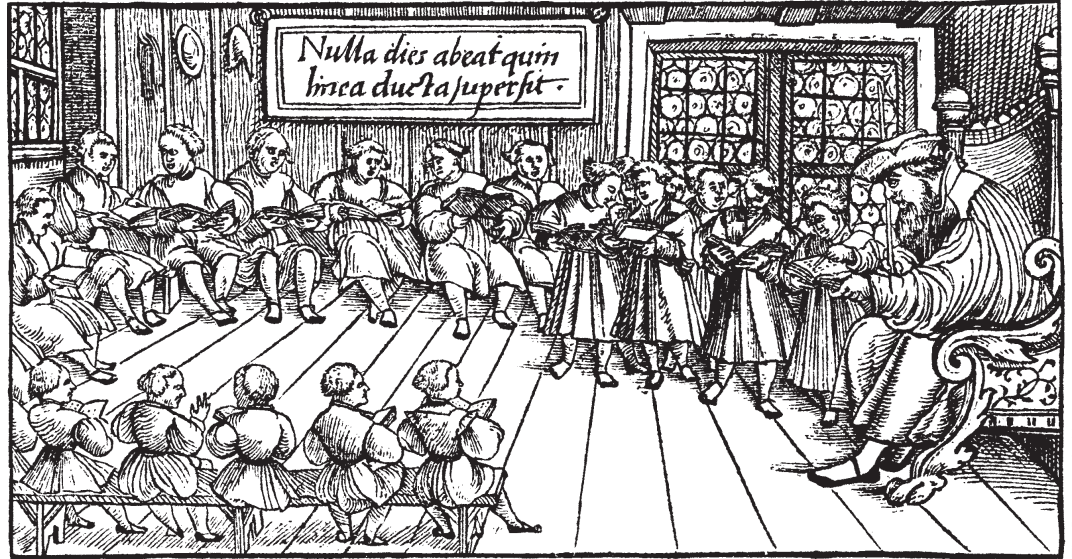 Nulla dies abeat quin
linea ducta supersit .